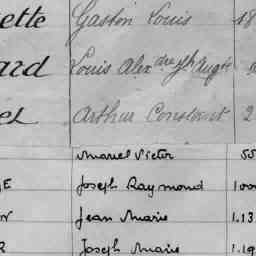 ette Gaston Louis 18
ard Louis Alexdre Jh Augte
et Arthur Constant 2
Marcel Victor 55
E Joseph Raymond 1000
Jean Marie 1.13
R Joseph Marie 1.19